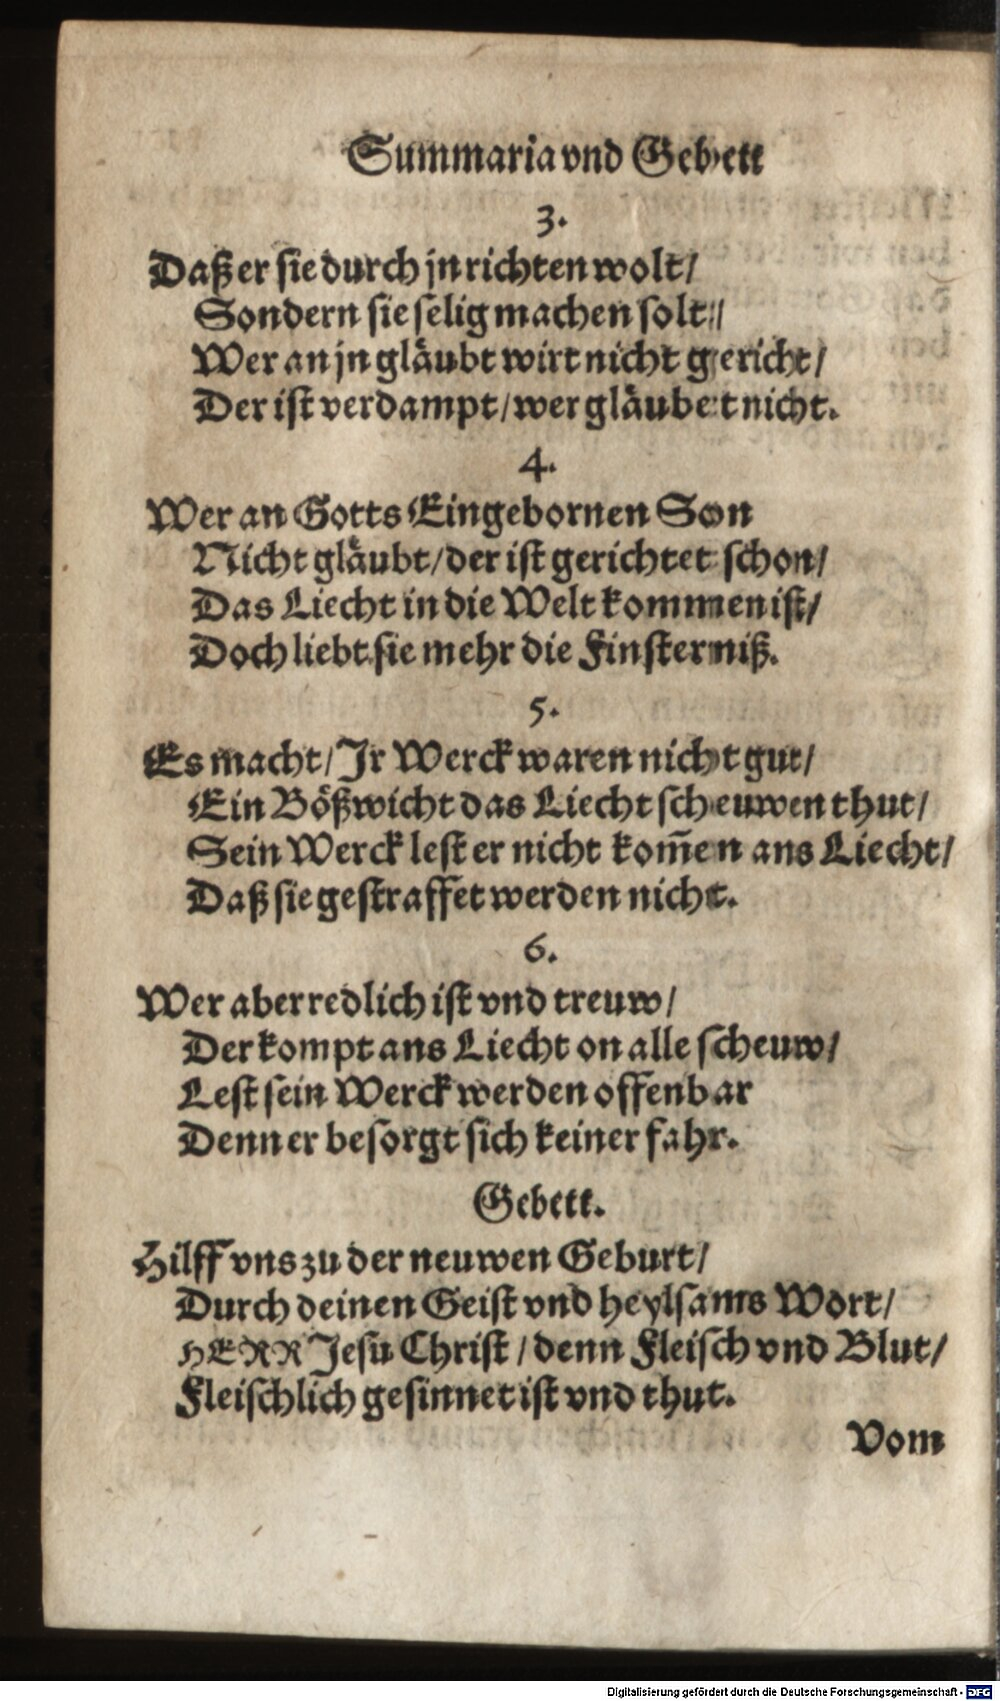 Summaria vnd Gebett
3.
Daß er sie durch jn richten wolt/
Sondern sie selig machen solt:/
Wer an jn gläubt wirt nicht gericht/
Der ist verdampt/wer gläubet nicht.
4.
Wer an Gotts Eingebornen Son
Nicht gläubt/der ist gerichtet schon/
Das Liecht in die Welt kommen ist/
Doch liebt sie mehr die Finsterniß.
5.
Es macht/Jr Werck waren nicht gut/
Ein Bößwicht das Liecht scheuwen thut/
Sein Werck lest er nicht kom̄en ans Liecht/
Daß sie gestraffet werden nicht.
6.
Wer aber redlich ist vnd treuw/
Der kompt ans Liecht on alle scheuw/
Lest sein Werck werden offenbar
Denn er besorgt sich keiner fahr.
Gebett.
Hilff vns zu der neuwen Geburt/
Durch deinen Geist vnd heylsams Wort/
HERR Jesu Christ/denn Fleisch vnd Blut/
Fleischlich gesinnet ist vnd thut.
Vom
Digitalisierung gefördert durch die Deutsche Forschungsgemeinschaft - DFG